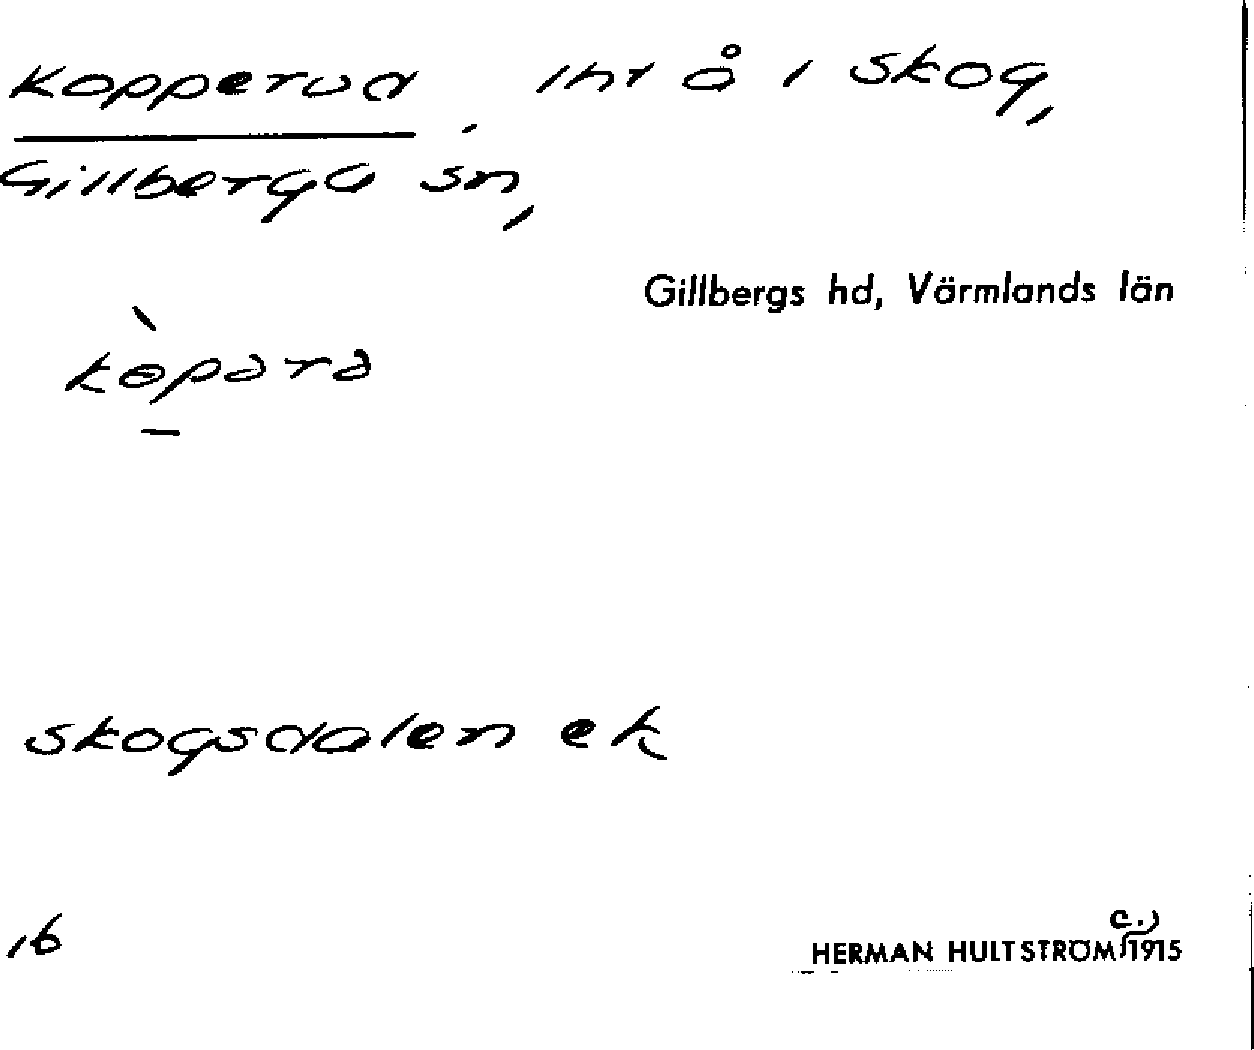 Kopperud, int å i Skog,
Gillberga sn,
Gillbergs hd, Värmlands län
kɵ̀pərə
Skogsdalen ek
16
c.)
HERMAN HULTSTRÖM 1915